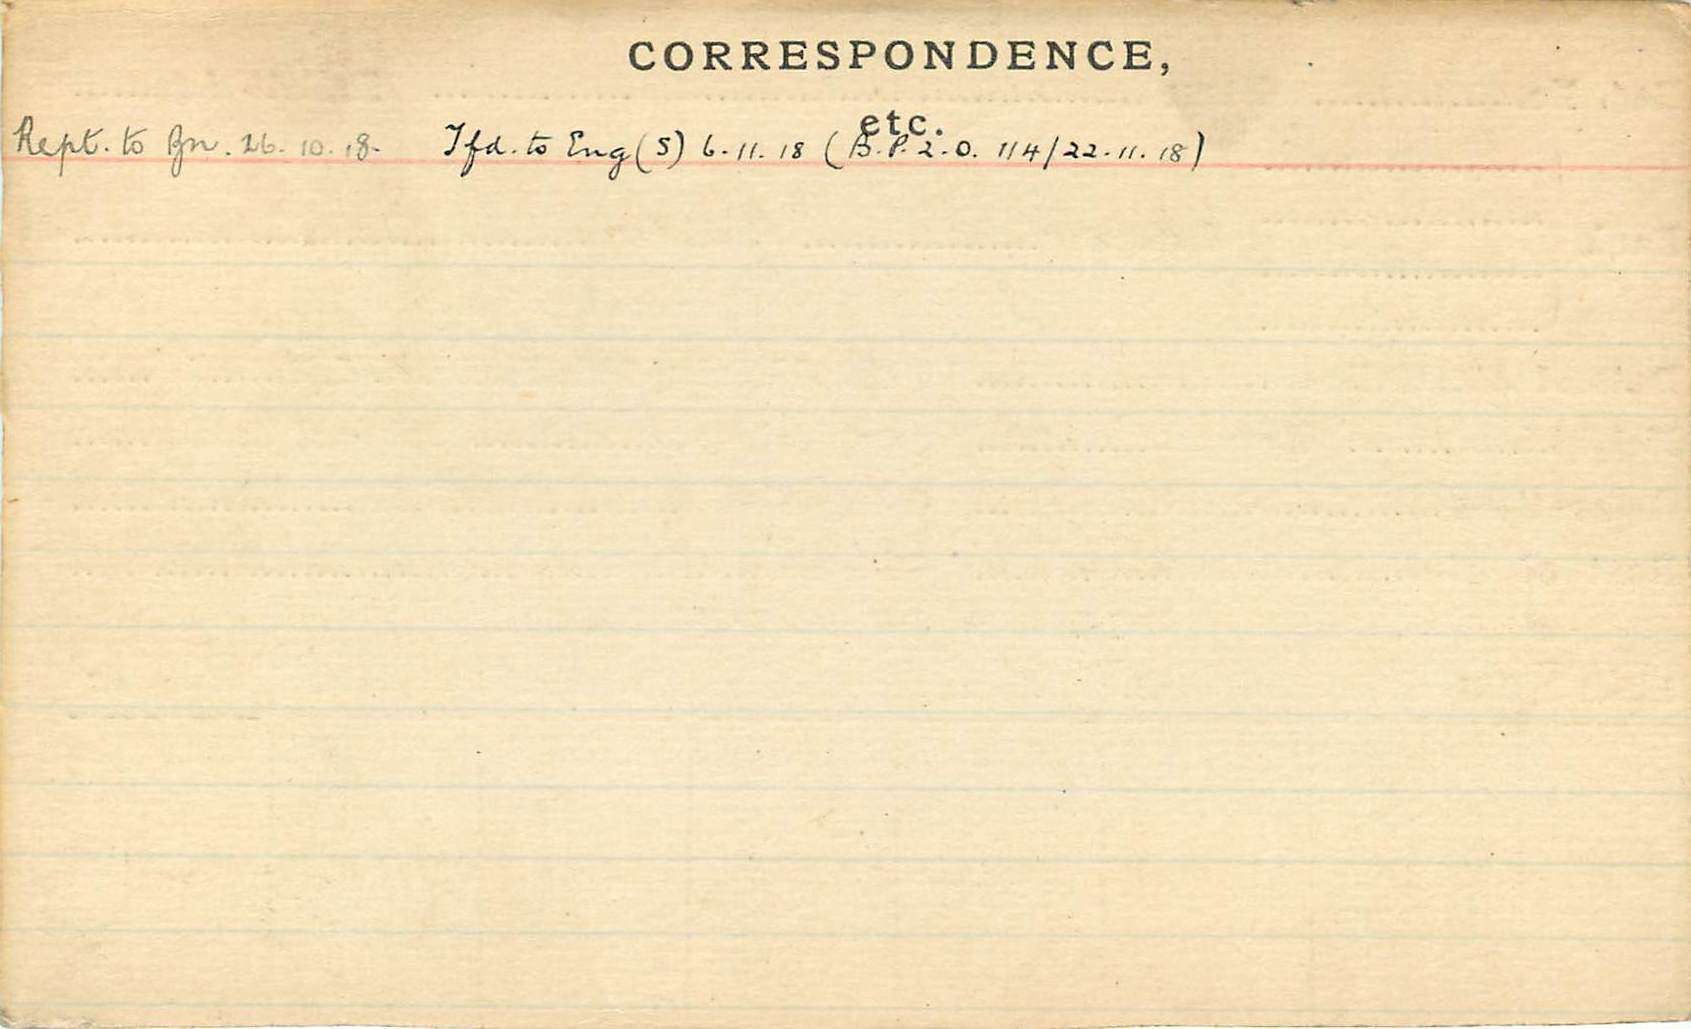 CORRESPONDENCE,
etc.
Rept. to Bn. 26.10.18. Tfd. to Eng(S) 6.11.18 (B.P.2.O. 114/22.11.18)